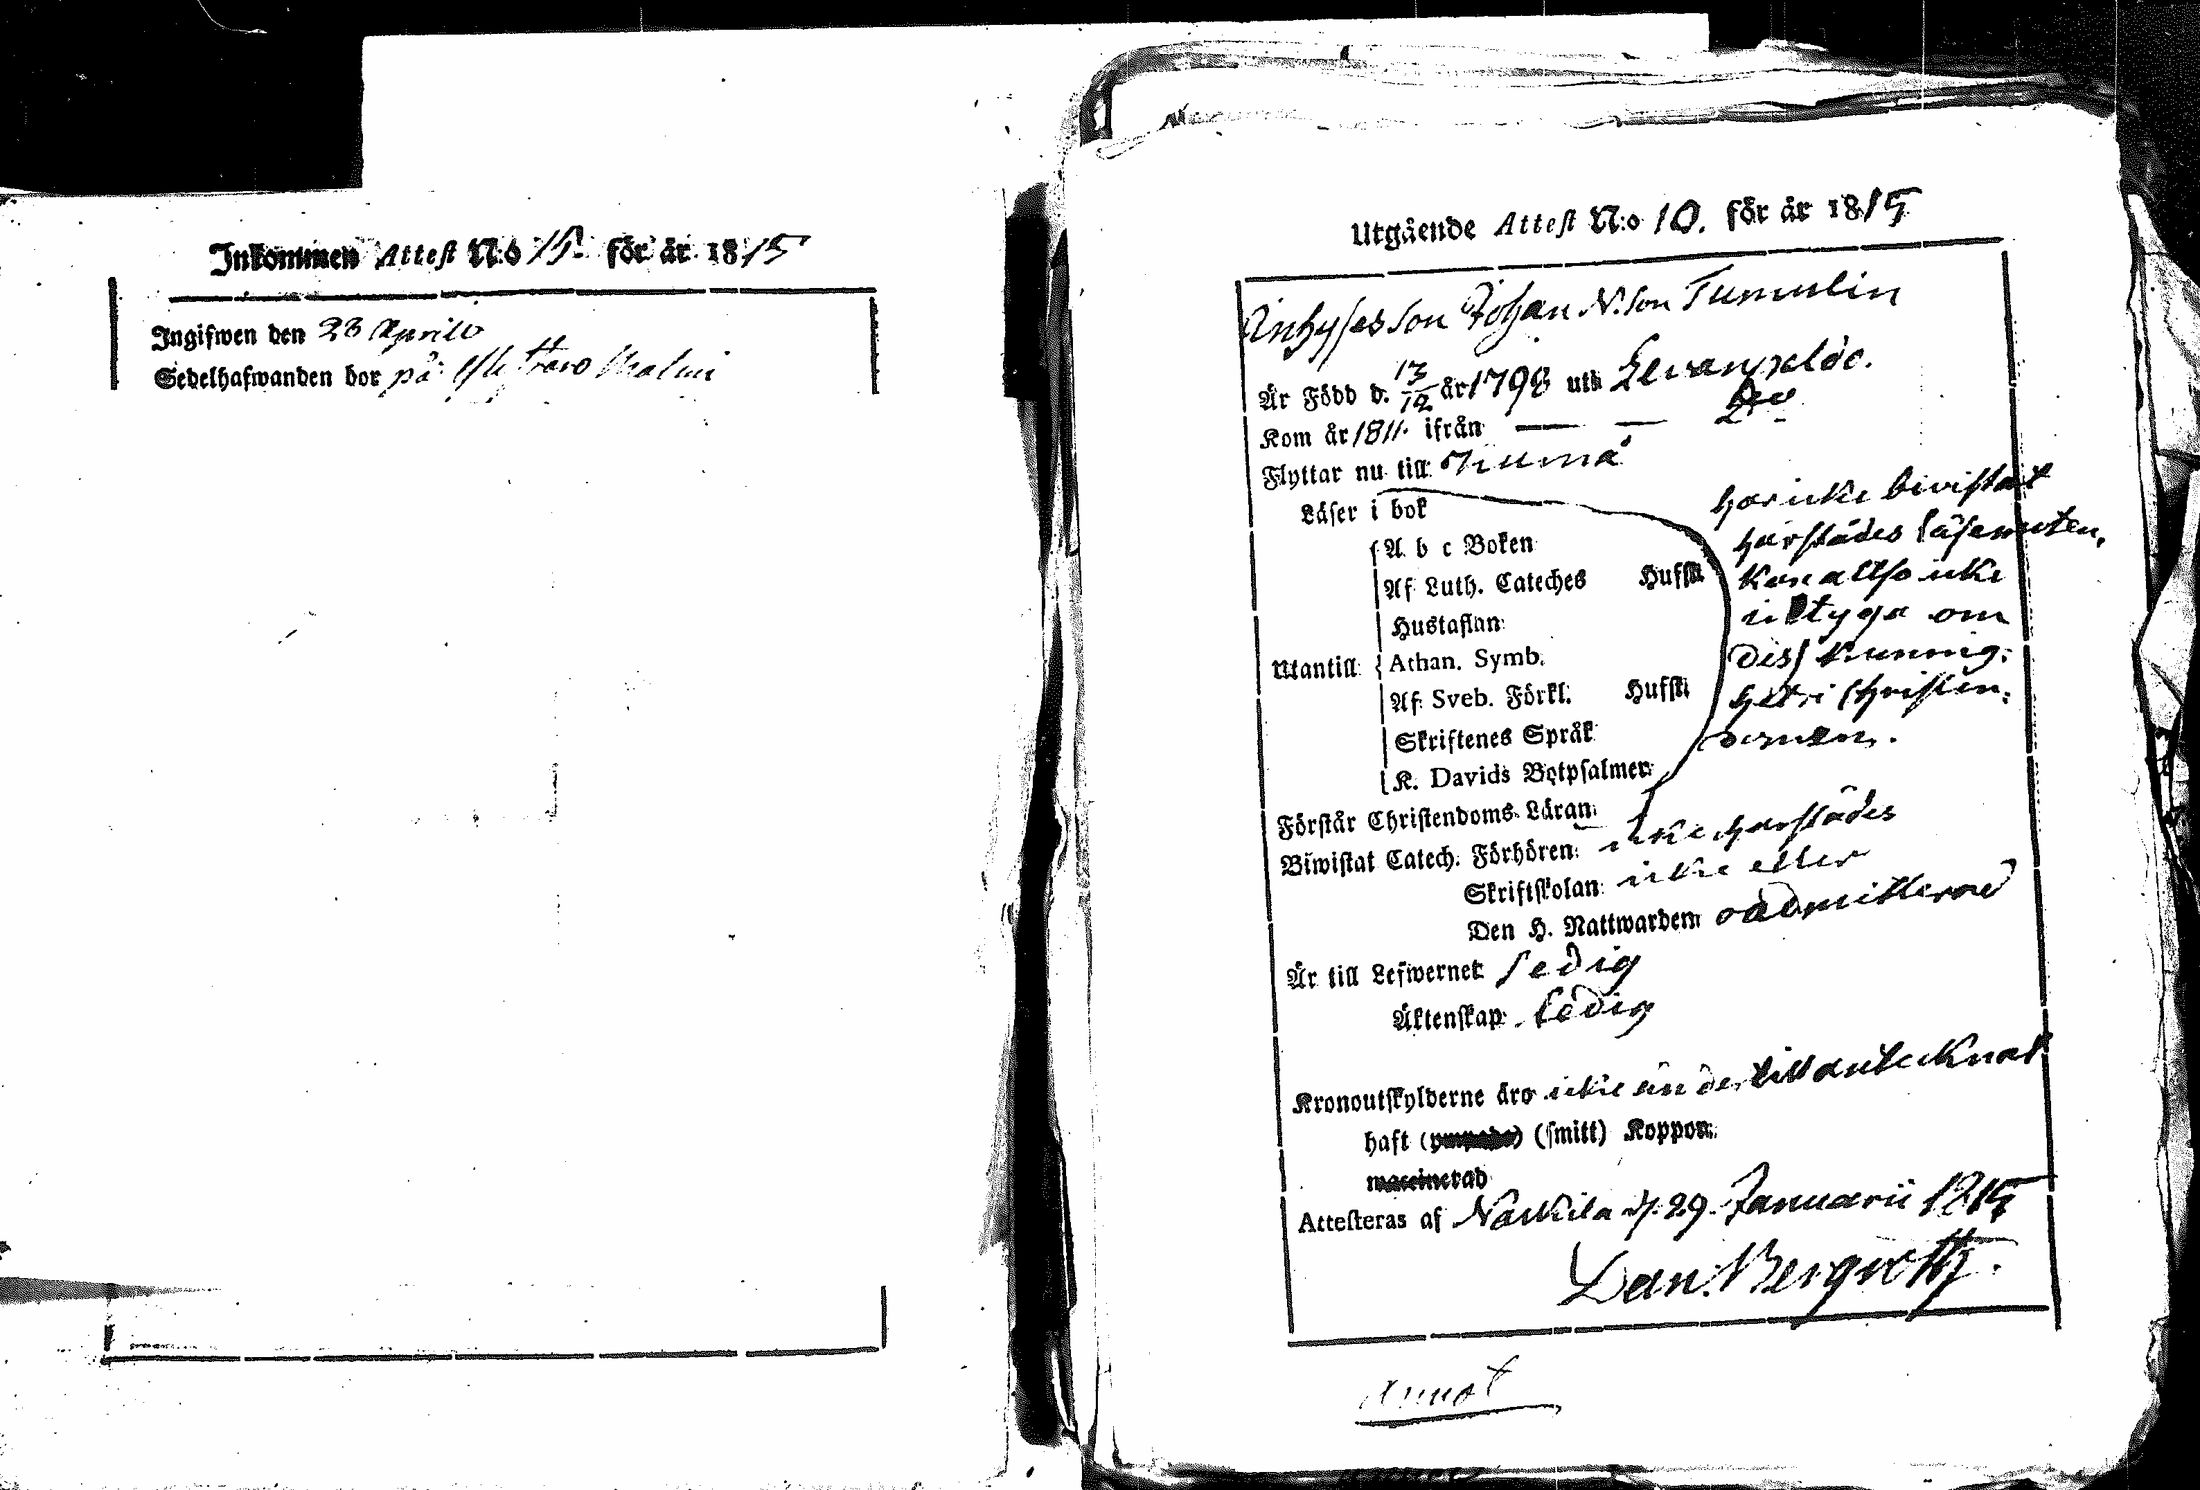 Inkommen Attest N:o 15. för år 1815
Ingifwen den 28 Aprilis
Sedelhafwanden bor på Malmi
Utgående Attest N:o 10. för år 1815
Inhyses Son Johan N.son Tumulin
Är Född d. 13/12 år 1798 uti
Kom år 1811. ifrån — — D:o
Flyttar nu till Kumå
Läser i bok
har icke bivistat
härstädes Läsemöten,
kan altså icke
intyga om
dess kunnig:
het i Christen:
domen.
Utantill
A b c Boken
Af Luth. Cateches Hufst.
Hustaflan
Athan. Symb.
Af Sveb. Förkl. Hufst.
Skriftenes Språk
K. Davids Botpsalmer
Förstår Christendoms Läran
Biwistat Catech. Förhören icke härstädes
Skriftskolan icke eller
Den H. Nattwarden oadmitterad
Är till Lefwernet sedig
Äktenskap ledig
Kronoutskylderne äro icke än des till antecknat
haft (smitt) Koppor
waccinerad
Attesteras af Nackila d. 29. Januarii 1815
Dan. Bergroth.
Annot